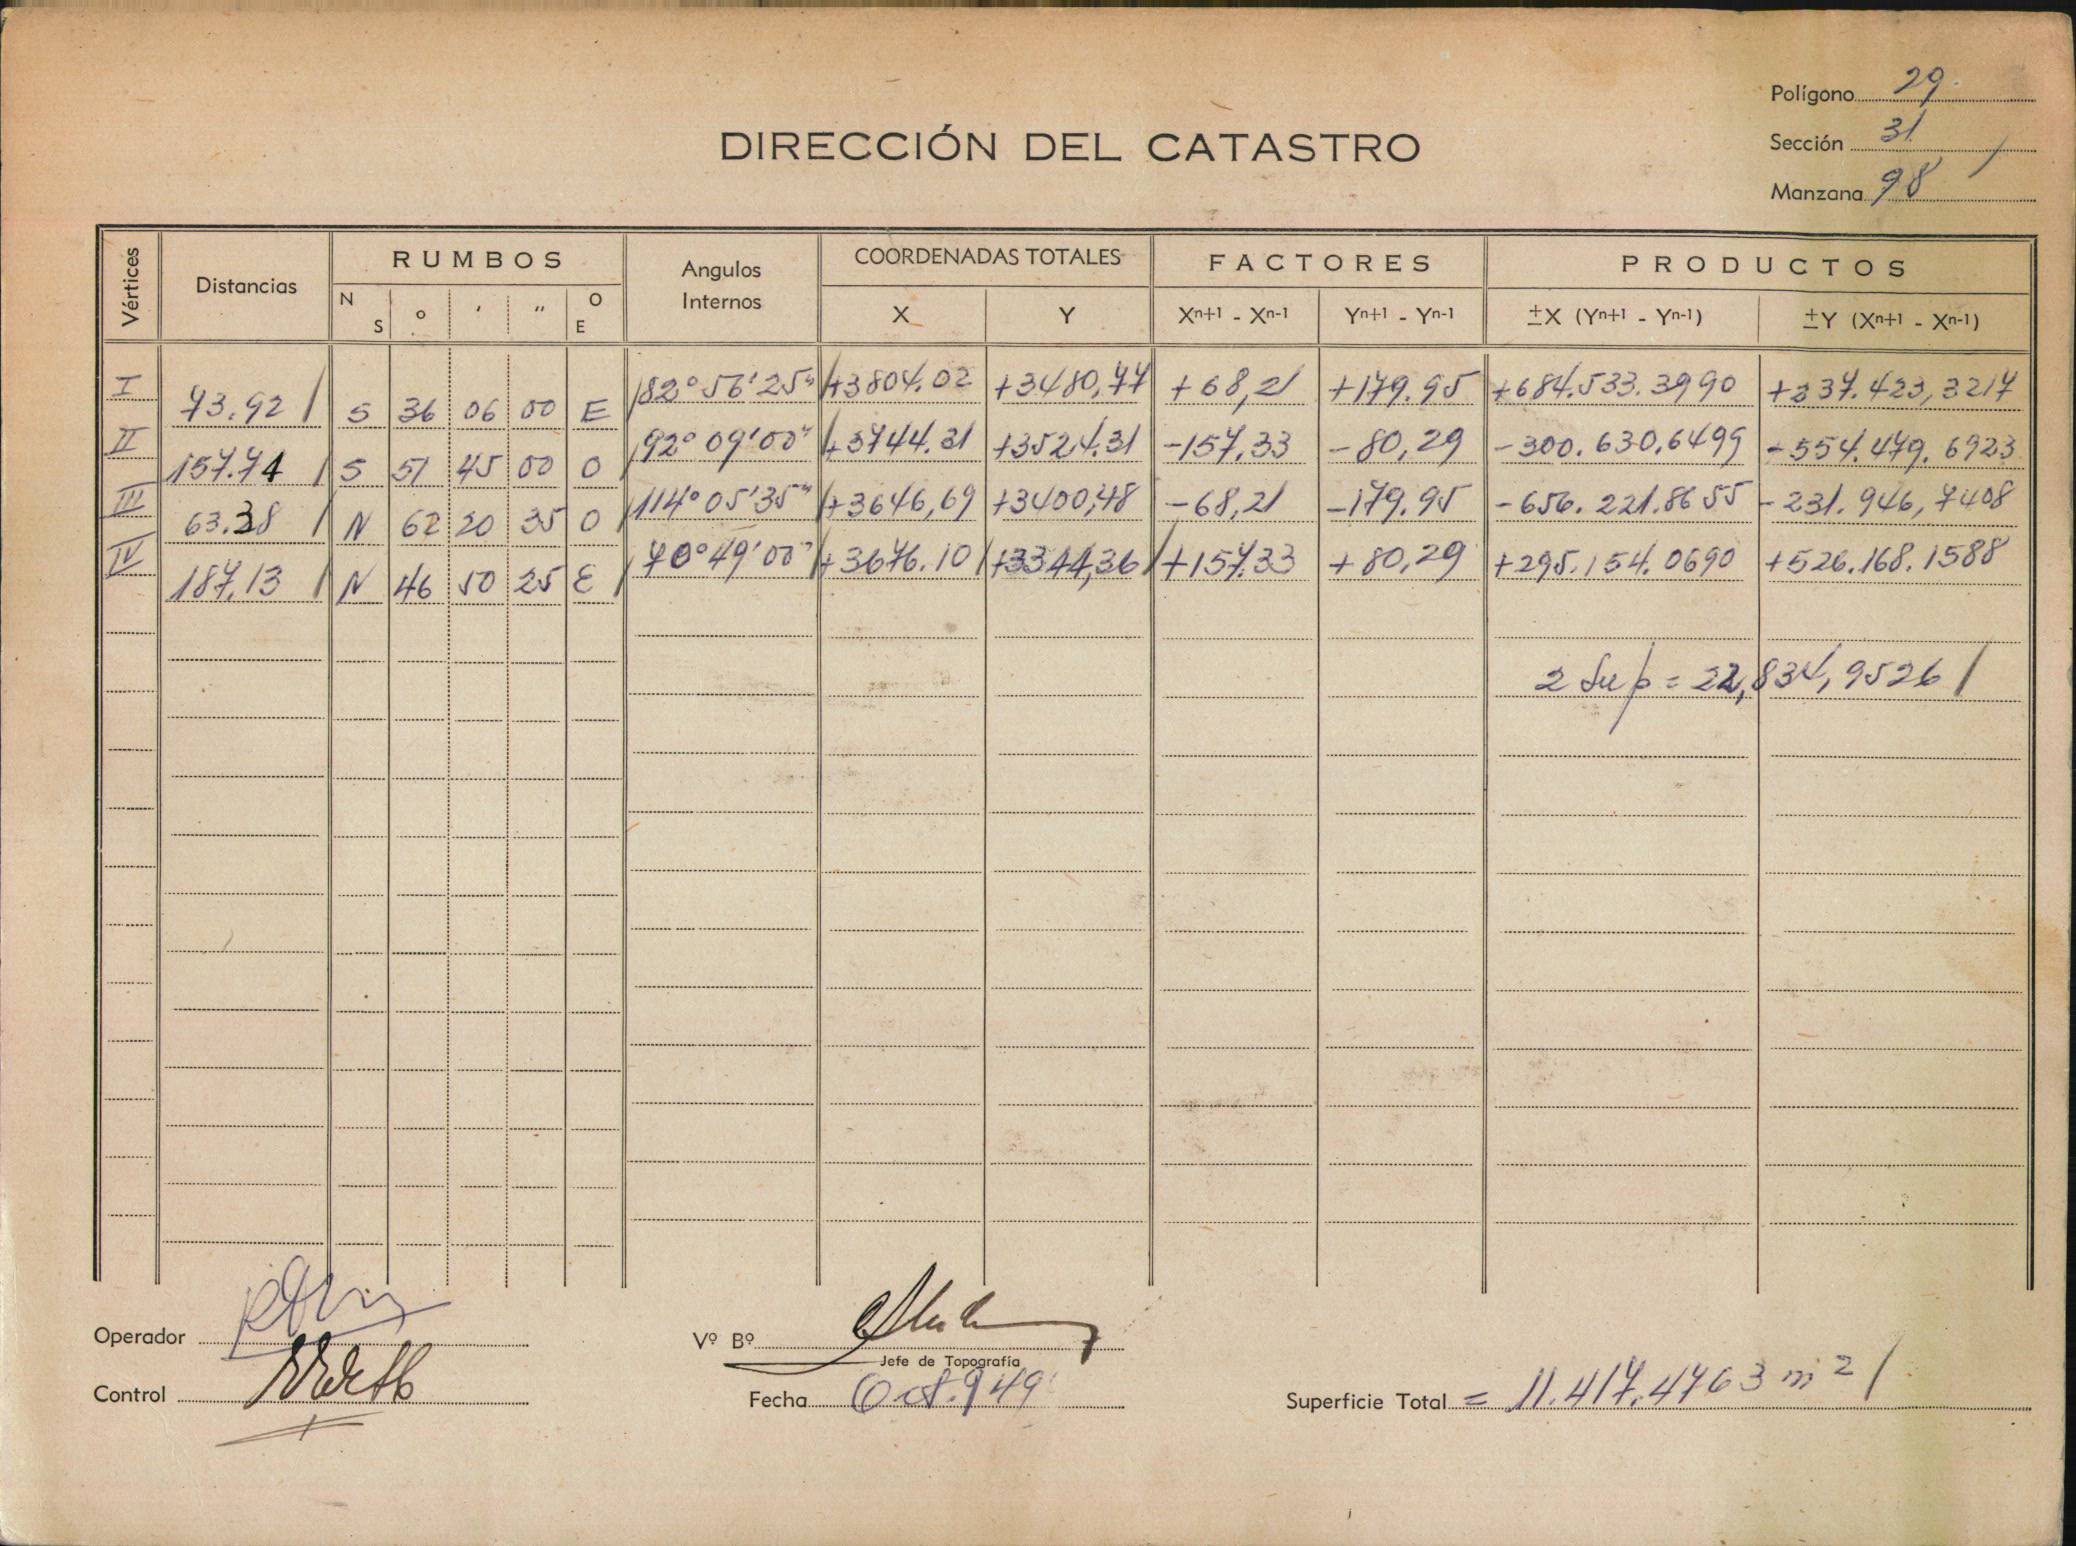 Polígono 29
DIRECCIÓN DEL CATASTRO
Sección 31
Manzana 98
Vértices Distancias RUMBOS Angulos Internos COORDENADAS TOTALES FACTORES PRODUCTOS
N S ° ' " O E X Y Xn+1 - Xn-1 Yn+1 - Yn-1 ±X (Yn+1 - Yn-1) ±Y (Xn+1 - Xn-1)
I 82° 56' 25" +3804.02 +3480,77 +68,21 +179.95 +684.533.3990 +237.423,3217
73.92 S 36 06 00 E
II 92° 09' 00" +3744.31 +3524.31 -157,33 -80,29 -300.630,6499 -554.479.6923
157.74 S 51 45 00 O
III 114° 05' 35" +3646,69 +3400,48 -68,21 -179.95 -656.221.8655 -231.946,7408
63.38 N 62 20 35 O
IV 70° 49' 00" +3676.10 +3344,36 +157.33 +80,29 +295.154.0690 +526.168.1588
187,13 N 46 50 25 E
2 Sup = 22,834,9526
Operador
Vº Bº
Jefe de Topografía
Control
Fecha Oct. 949
Superficie Total = 11.417.4763 m2